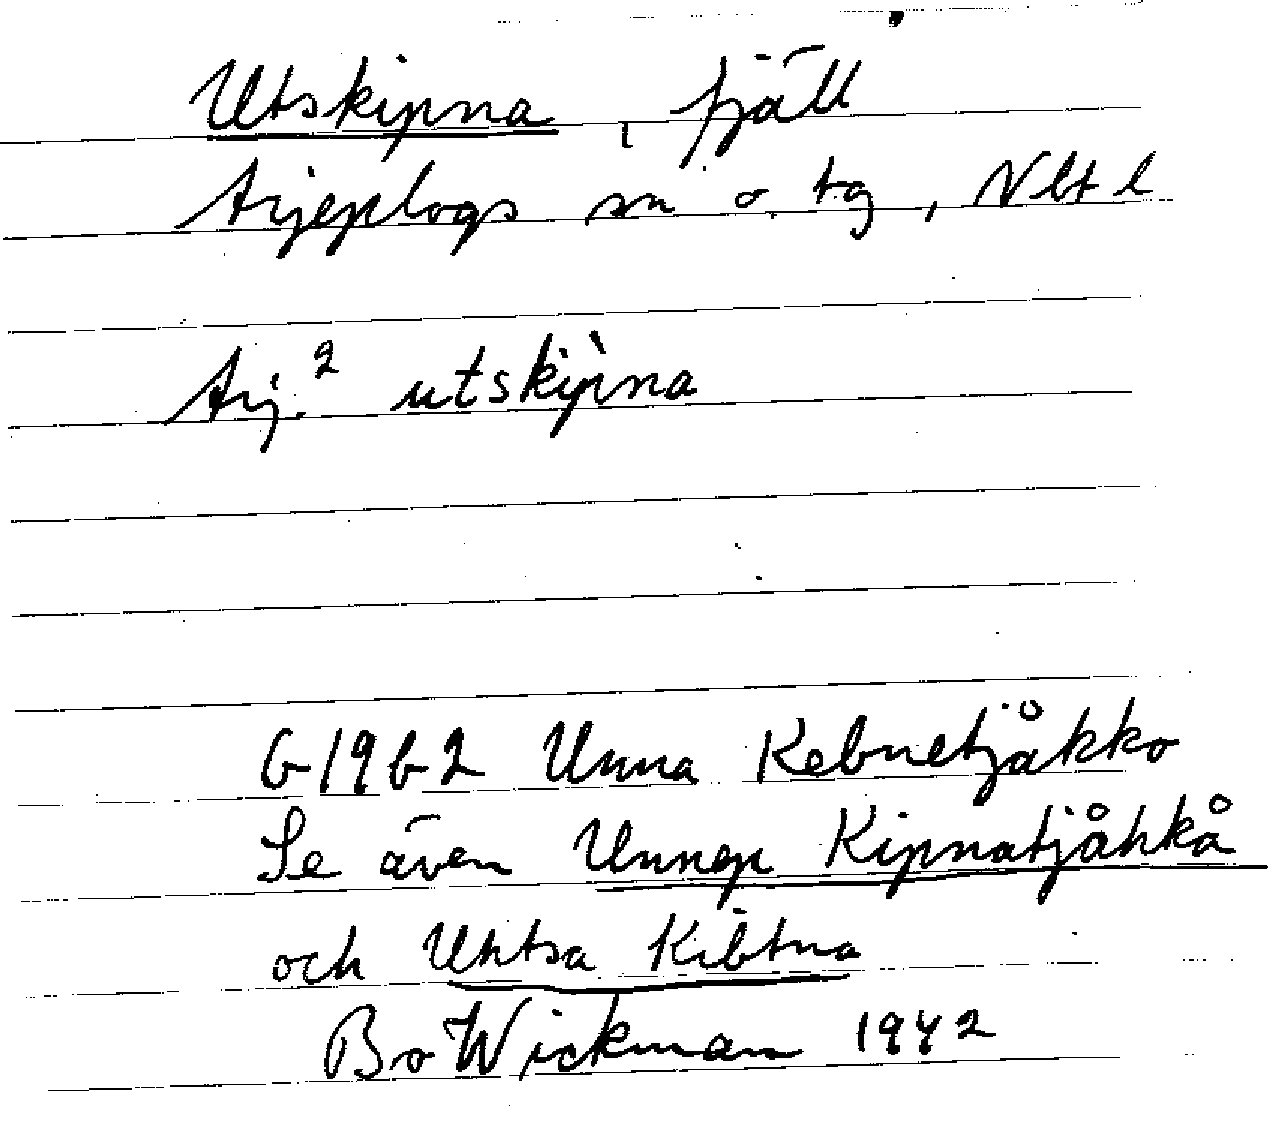 Utskipna, fjäll
Arjeplogs sn o. tg, Nbt l
Arj.² utskipna
G1962 Unna Kebnetjåkko
Se även Unnep Kipnatjåhkå
och Uhtsa Kibtna
Bo Wickman 1942